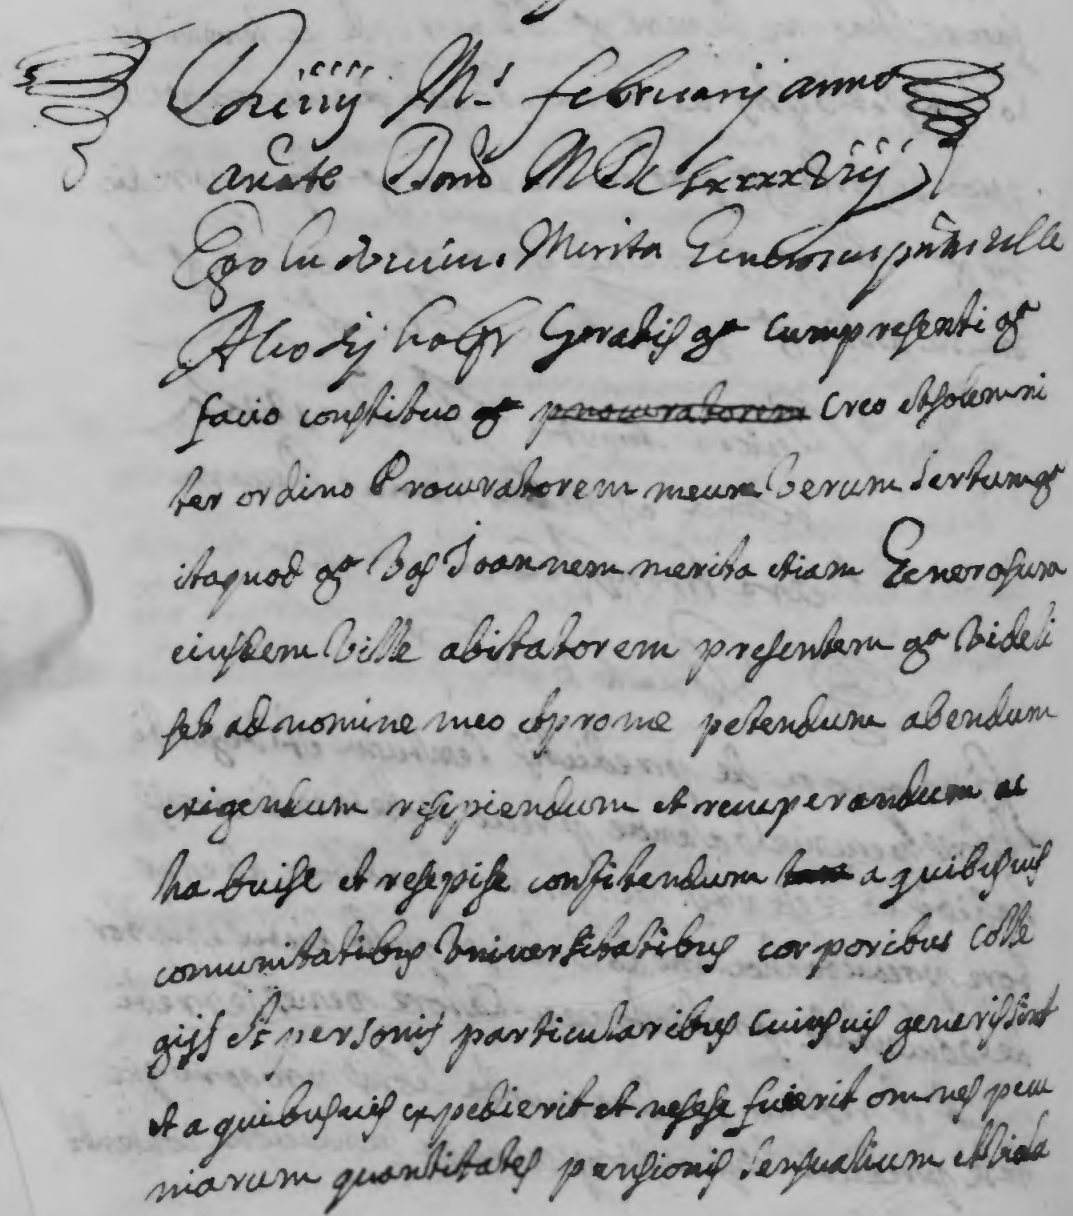 Die iiij M.s februarij anno
a nate Domi M Dc Lxxxxviiij
Ego ludovicus Merita Generosus pntis ville
Alcodij haffr Gratis et cum presenti et
facio constituo et procuratorem Creo et solemni
ter ordino Procuratorem meum Verum sertum et
itaquod et Vos Joannem merita etiam Generosum
eiusdem Ville abitatorem presentem et Videli
set ad nomine meo et pro me petendum abendum
exigendum resipiendum et recuperandum ac
ha buise et resepise confitendum a quibusvis
comunitatibus Universitatibus corporibus Colle
gijs et personis particularibus cuiusvis generis sint
et a quibusvis expedierit et nesese fuerit omnes pecu
niarum quantitates pensionis sensualium et